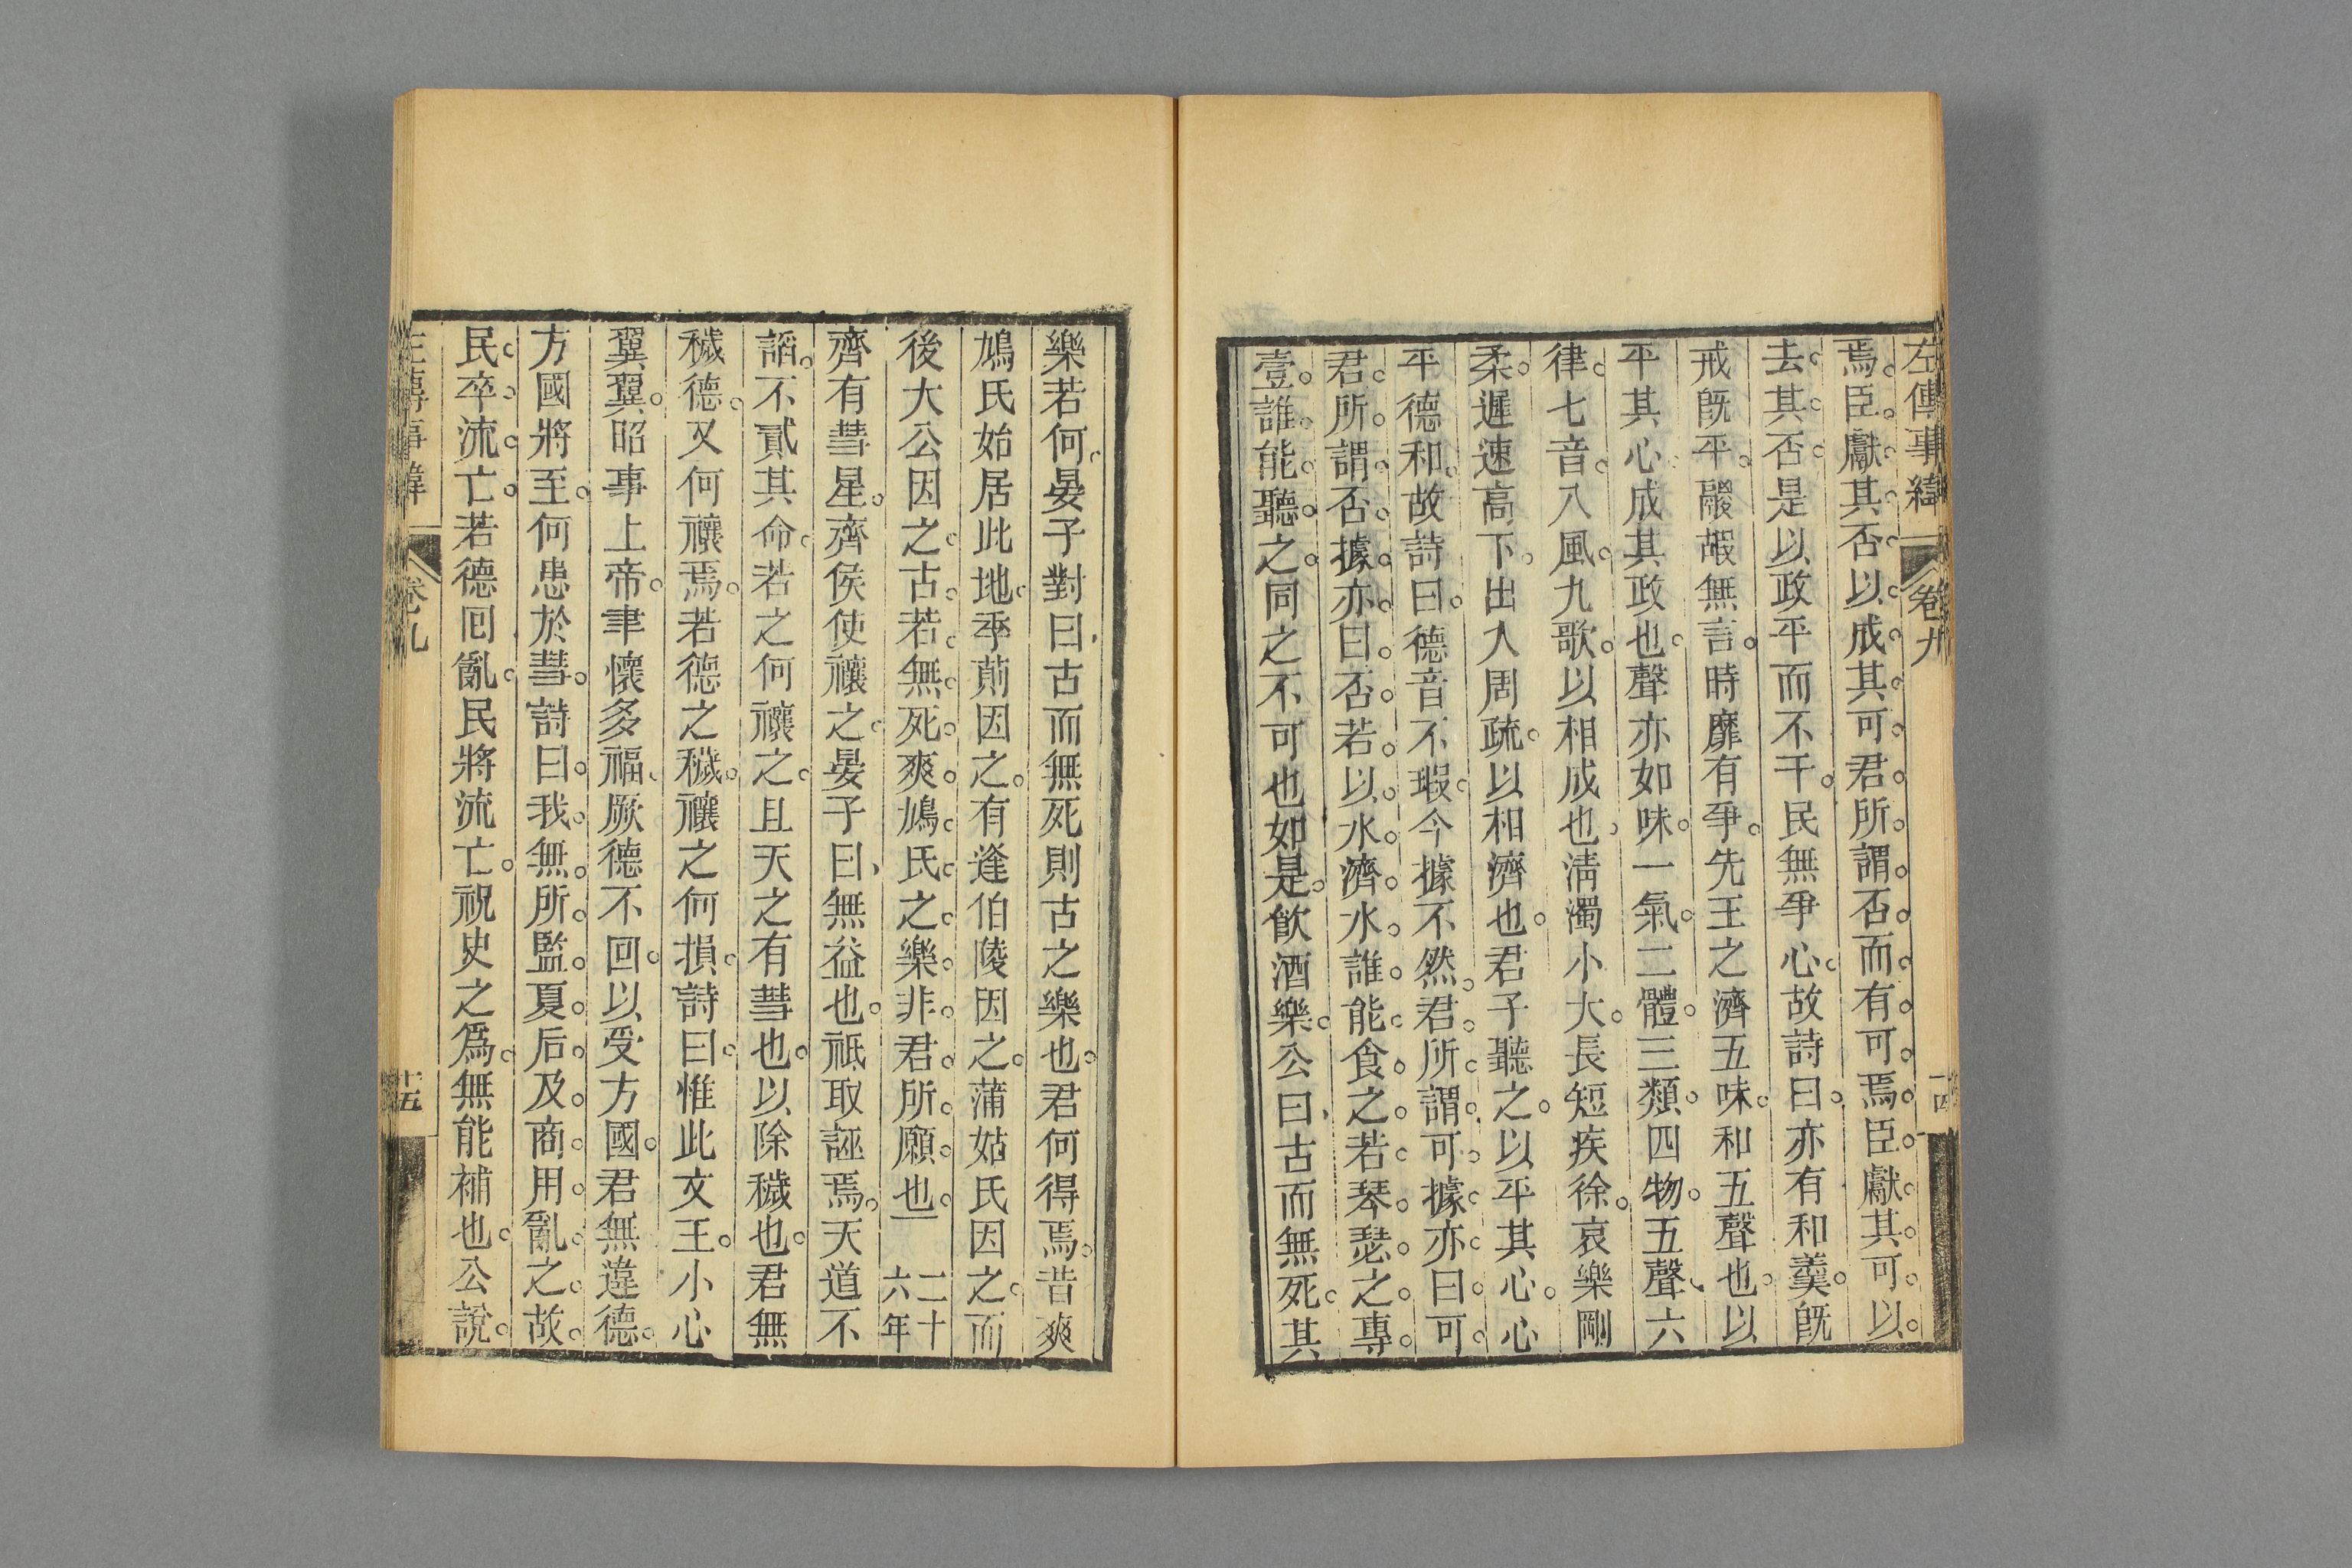 左傳事緯 卷九 十四
焉臣獻其否以成其可君所謂否而有可焉臣獻其可以
去其否是以政平而不干民無爭心故詩曰亦有和羹旣
戒旣平鬷嘏無言時靡有爭先王之濟五味和五聲也以
平其心成其政也聲亦如味一氣二體三類四物五聲六
律七音八風九歌以相成也淸濁小大長短疾徐哀樂剛
柔遲速高下出入周疏以相濟也君子聽之以平其心心
平德和故詩曰德音不瑕今據不然君所謂可據亦曰可
君所謂否據亦曰否若以水濟水誰能食之若琴瑟之專
壹誰能聽之同之不可也如是飮酒樂公曰古而無死其
樂若何晏子對曰古而無死則古之樂也君何得焉昔爽
鳩氏始居此地季萴因之有逢伯陵因之蒲姑氏因之而
後大公因之古若無死爽鳩氏之樂非君所願也 二十六年
齊有彗星齊侯使禳之晏子曰無益也祗取誣焉天道不
謟不貳其命若之何禳之且天之有彗也以除穢也君無
穢德又何禳焉若德之穢禳之何損詩曰惟此文王小心
翼翼昭事上帝聿懷多福厥德不回以受方國君無違德
方國將至何患於彗詩曰我無所監夏后及商用亂之故
民卒流亡若德回亂民將流亡祝史之爲無能補也公說
左傳事緯 卷九 十五